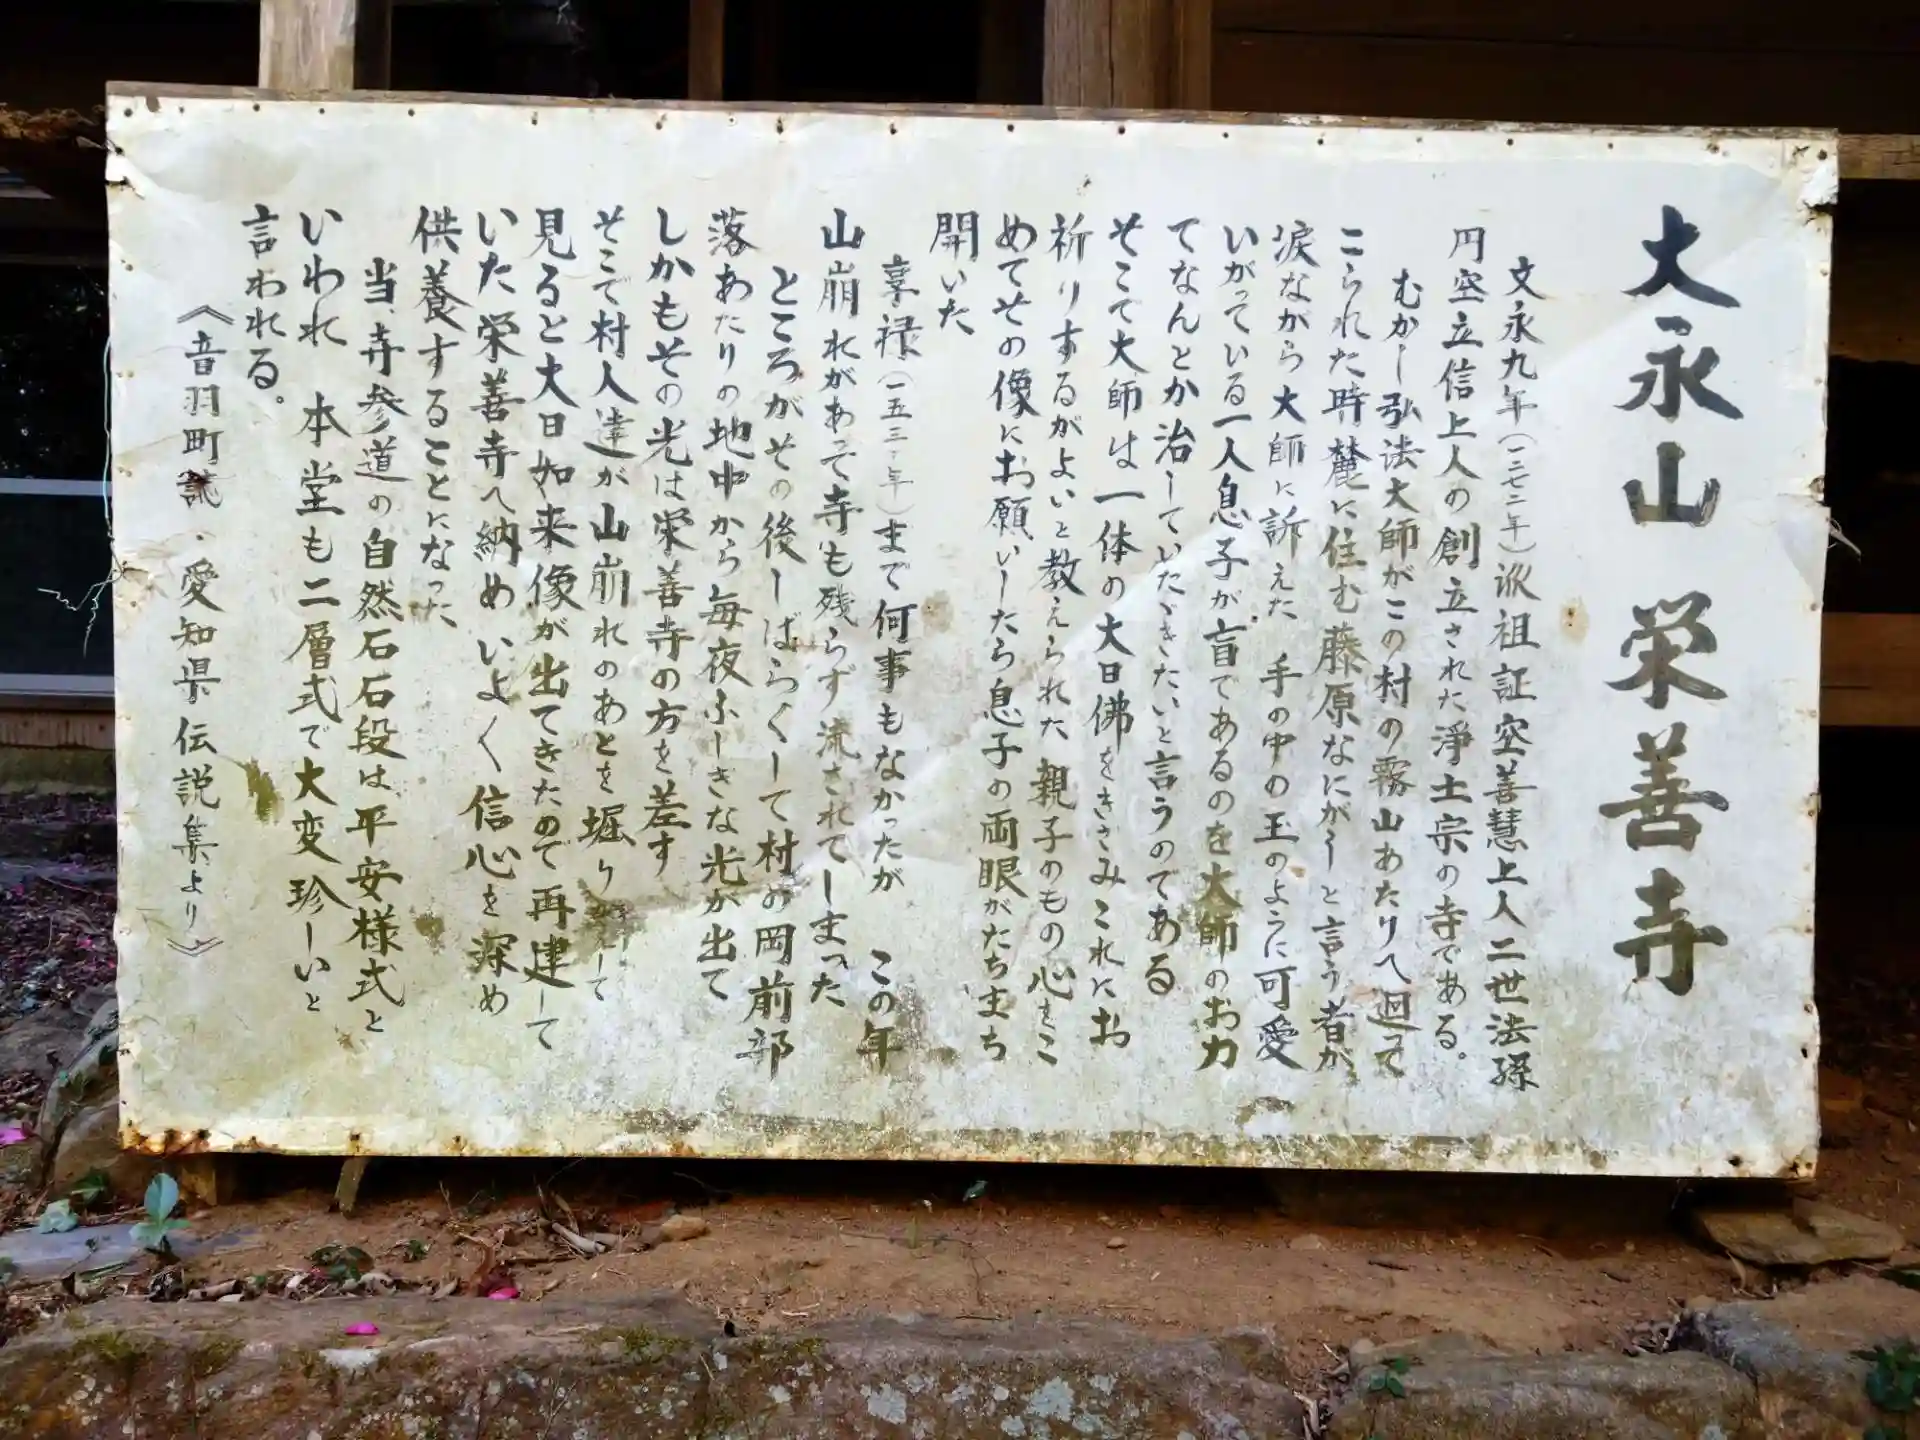 大永山 栄善寺
文永九年(一二七二年)派祖証空善慧上人二世法孫
円空立信上人の創立された浄土宗の寺である。
むかし弘法大師がこの村の霧山あたりへ廻って
こられた時麓に住む藤原なにがしと言う者が
涙ながら大師に訴えた 手の中の玉のように可愛
いがっている一人息子が盲であるのを大師のお力
てなんとか治していたゞきたいと言うのてある
そこて大師は一体の大日佛をきざみこれにお
祈りするがよいと教えられた 親子のもの心をこ
めてその像にお願いしたら息子の両眼がたちまち
開いた
享禄(一五三〇年)まで何事もなかったが この年
山崩れがあって寺も残らず流されてしまった
ところがその後しばらくして村の岡前部
落あたりの地中から毎夜ふしぎな光が出て
しかもその光は栄善寺の方を差す
そこで村人達が山崩れのあとを堀り して
見ると大日如来像が出てきたので再建して
いた栄善寺へ納めいよく信心を深め
供養することになった
当寺参道の自然石石段は平安様式と
いわれ 本堂も二層式で大変珍しいと
言われる。
《音羽町誌・愛知県伝説集より》